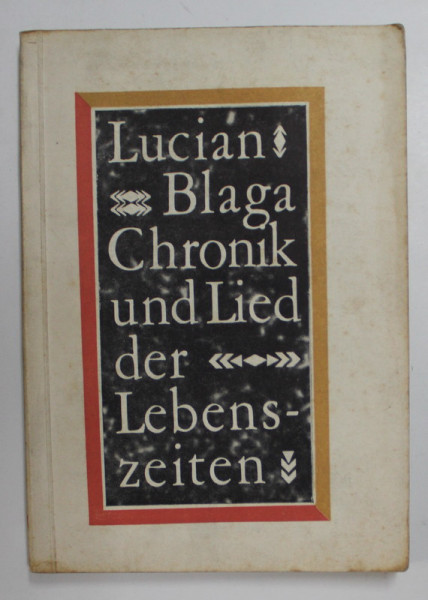 Lucian
Blaga
Chronik
und Lied
der
Lebens-
zeiten